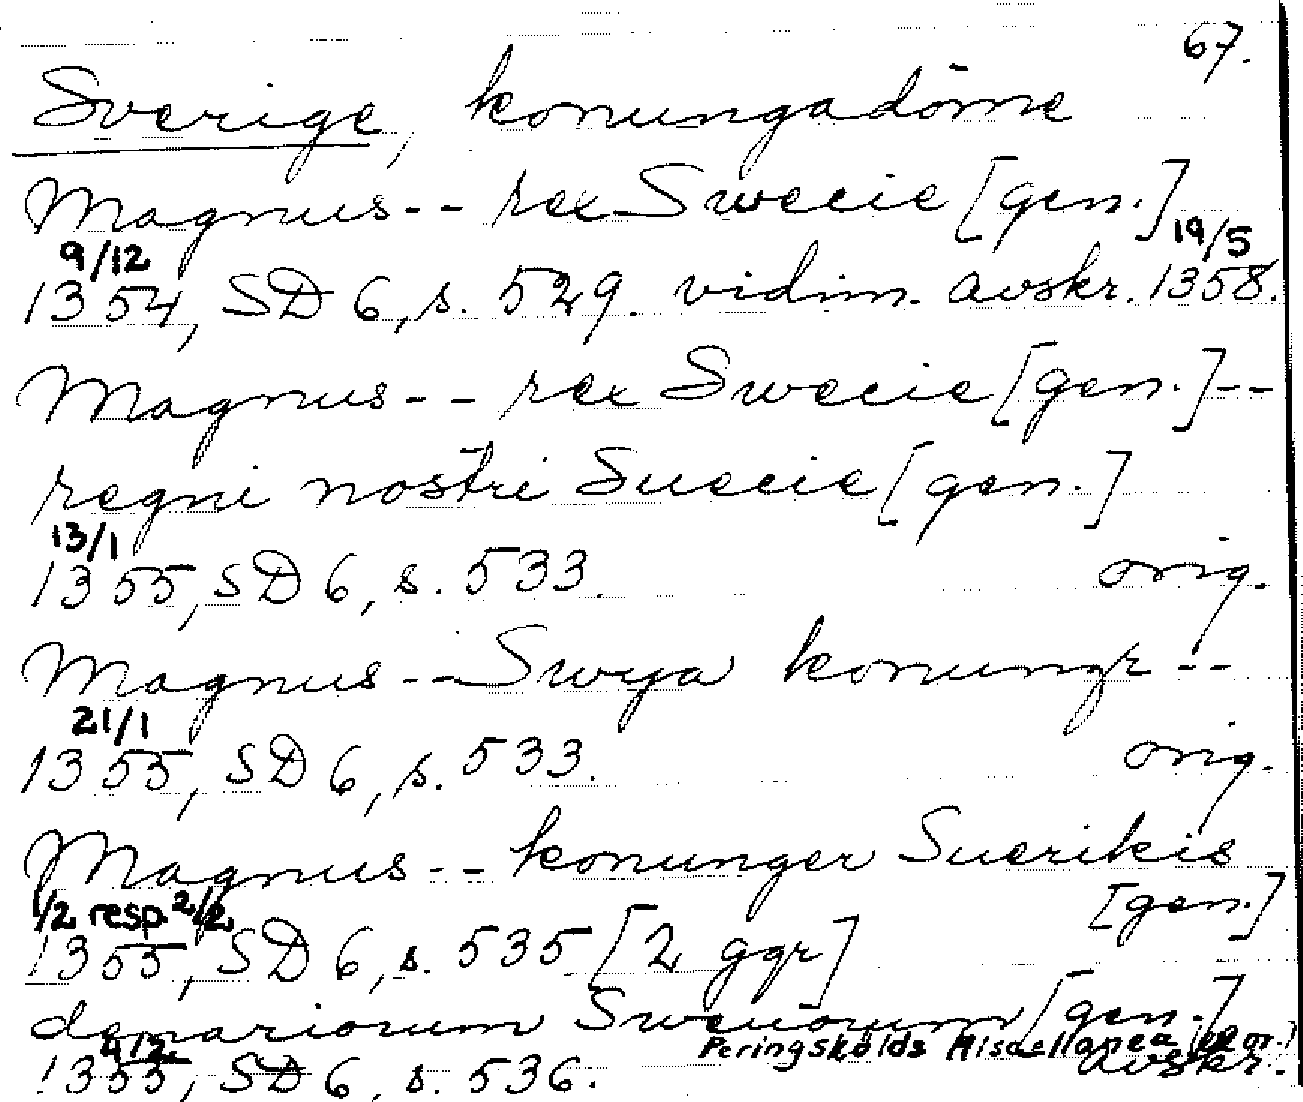 67.
Sverige, konungadöme
Magnus -- rex Swecie [gen.]
9/12 19/5
1354, SD 6, s. 529. vidim. avskr. 1358.
Magnus -- rex Swecie [gen.] --
regni nostri Suecie [gen.]
13/1
1355, SD 6, s. 533. orig.
Magnus -- Swya konungr --
21/1
1355, SD 6, s. 533. orig.
Magnus -- konunger Suerikis
[gen.]
1/2 resp. 2/2
1355, SD 6, s. 535 [2 ggr]
denariorum Sweuorum [gen.]
Peringskölds Miscellanea
1355, SD 6, s. 536. avskr.